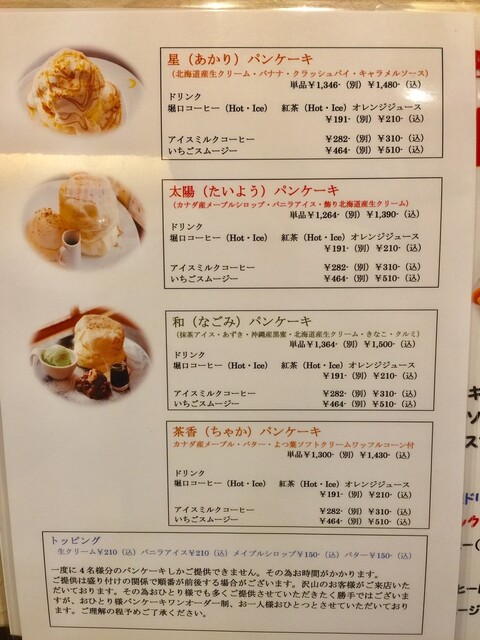 星（あかり）パンケーキ
（北海道産生クリーム・バナナ・クラッシュパイ・キャラメルソース）
単品￥1,346-（別）￥1,480-（込）
ドリンク
堀口コーヒー（Hot・Ice） 紅茶（Hot・Ice）オレンジジュース
￥191-（別）￥210-（込）
アイスミルクコーヒー ￥282-（別）￥310-（込）
いちごスムージー ￥464-（別）￥510-（込）
太陽（たいよう）パンケーキ
（カナダ産メープルシロップ・バニラアイス・飾り北海道産生クリーム）
単品￥1,264-（別）￥1,390-（込）
ドリンク
堀口コーヒー（Hot・Ice） 紅茶（Hot・Ice）オレンジジュース
￥191-（別）￥210-（込）
アイスミルクコーヒー ￥282-（別）￥310-（込）
いちごスムージー ￥464-（別）￥510-（込）
和（なごみ）パンケーキ
（抹茶アイス・あずき・沖縄産黒蜜・北海道産生クリーム・きなこ・クルミ）
単品￥1,364-（別）￥1,500-（込）
ドリンク
堀口コーヒー（Hot・Ice） 紅茶（Hot・Ice）オレンジジュース
￥191-（別）￥210-（込）
アイスミルクコーヒー ￥282-（別）￥310-（込）
いちごスムージー ￥464-（別）￥510-（込）
茶香（ちゃか）パンケーキ
カナダ産メープル・バター・よつ葉ソフトクリームワッフルコーン付
単品￥1,300-（別）￥1,430-（込）
ドリンク
堀口コーヒー（Hot・Ice） 紅茶（Hot・Ice）オレンジジュース
￥191-（別）￥210-（込）
アイスミルクコーヒー ￥282-（別）￥310-（込）
いちごスムージー ￥464-（別）￥510-（込）
トッピング
生クリーム￥210（込）バニラアイス￥210（込）メイプルシロップ￥150-（込）バター￥150-（込）
一度に４名様分のパンケーキしかご提供できません。その為お時間がかかります。
ご提供は盛り付けの関係で順番が前後する場合がございます。沢山のお客様がご来店いた
だいております。その為おひとり様でも多くご提供させていただきたく勝手ではございま
すが、おひとり様パンケーキワンオーダー制、お一人様おひとつとさせていただいており
ます。ご理解の程予めご了承ください。